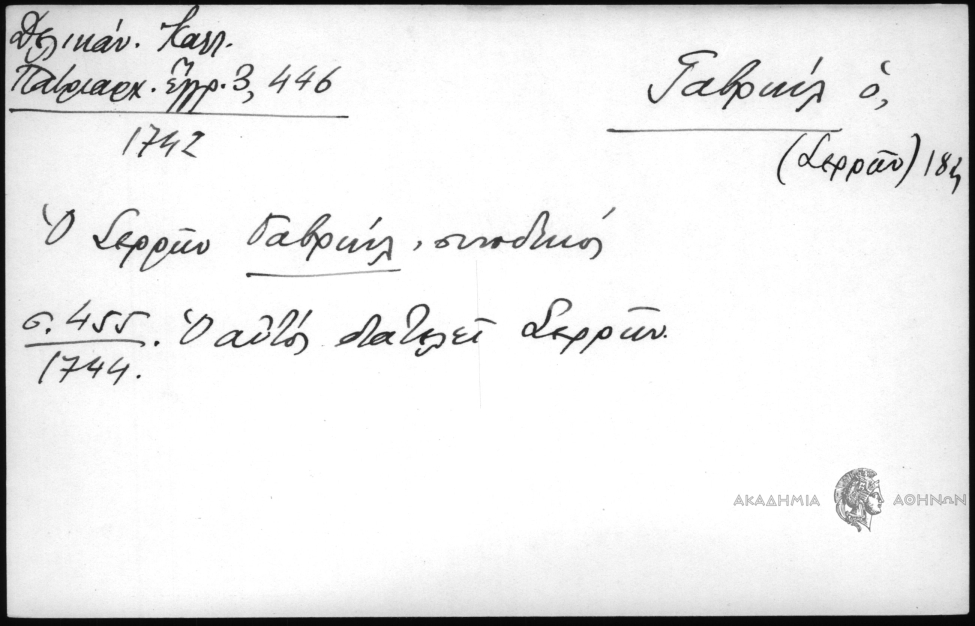 Δελικάν. Καλλ.
Πατριαρχ. ἔγγρ. 3, 446
1742
Γαβριὴλ ὁ,
(Σερρῶν) 18
Ὁ Σερρῶν Γαβριήλ, συνοδικός
σ. 455. Ὁ αὐτός διατελεῖ Σερρῶν.
1744.
ΑΚΑΔΗΜΙΑ ΑΘΗΝΩΝ